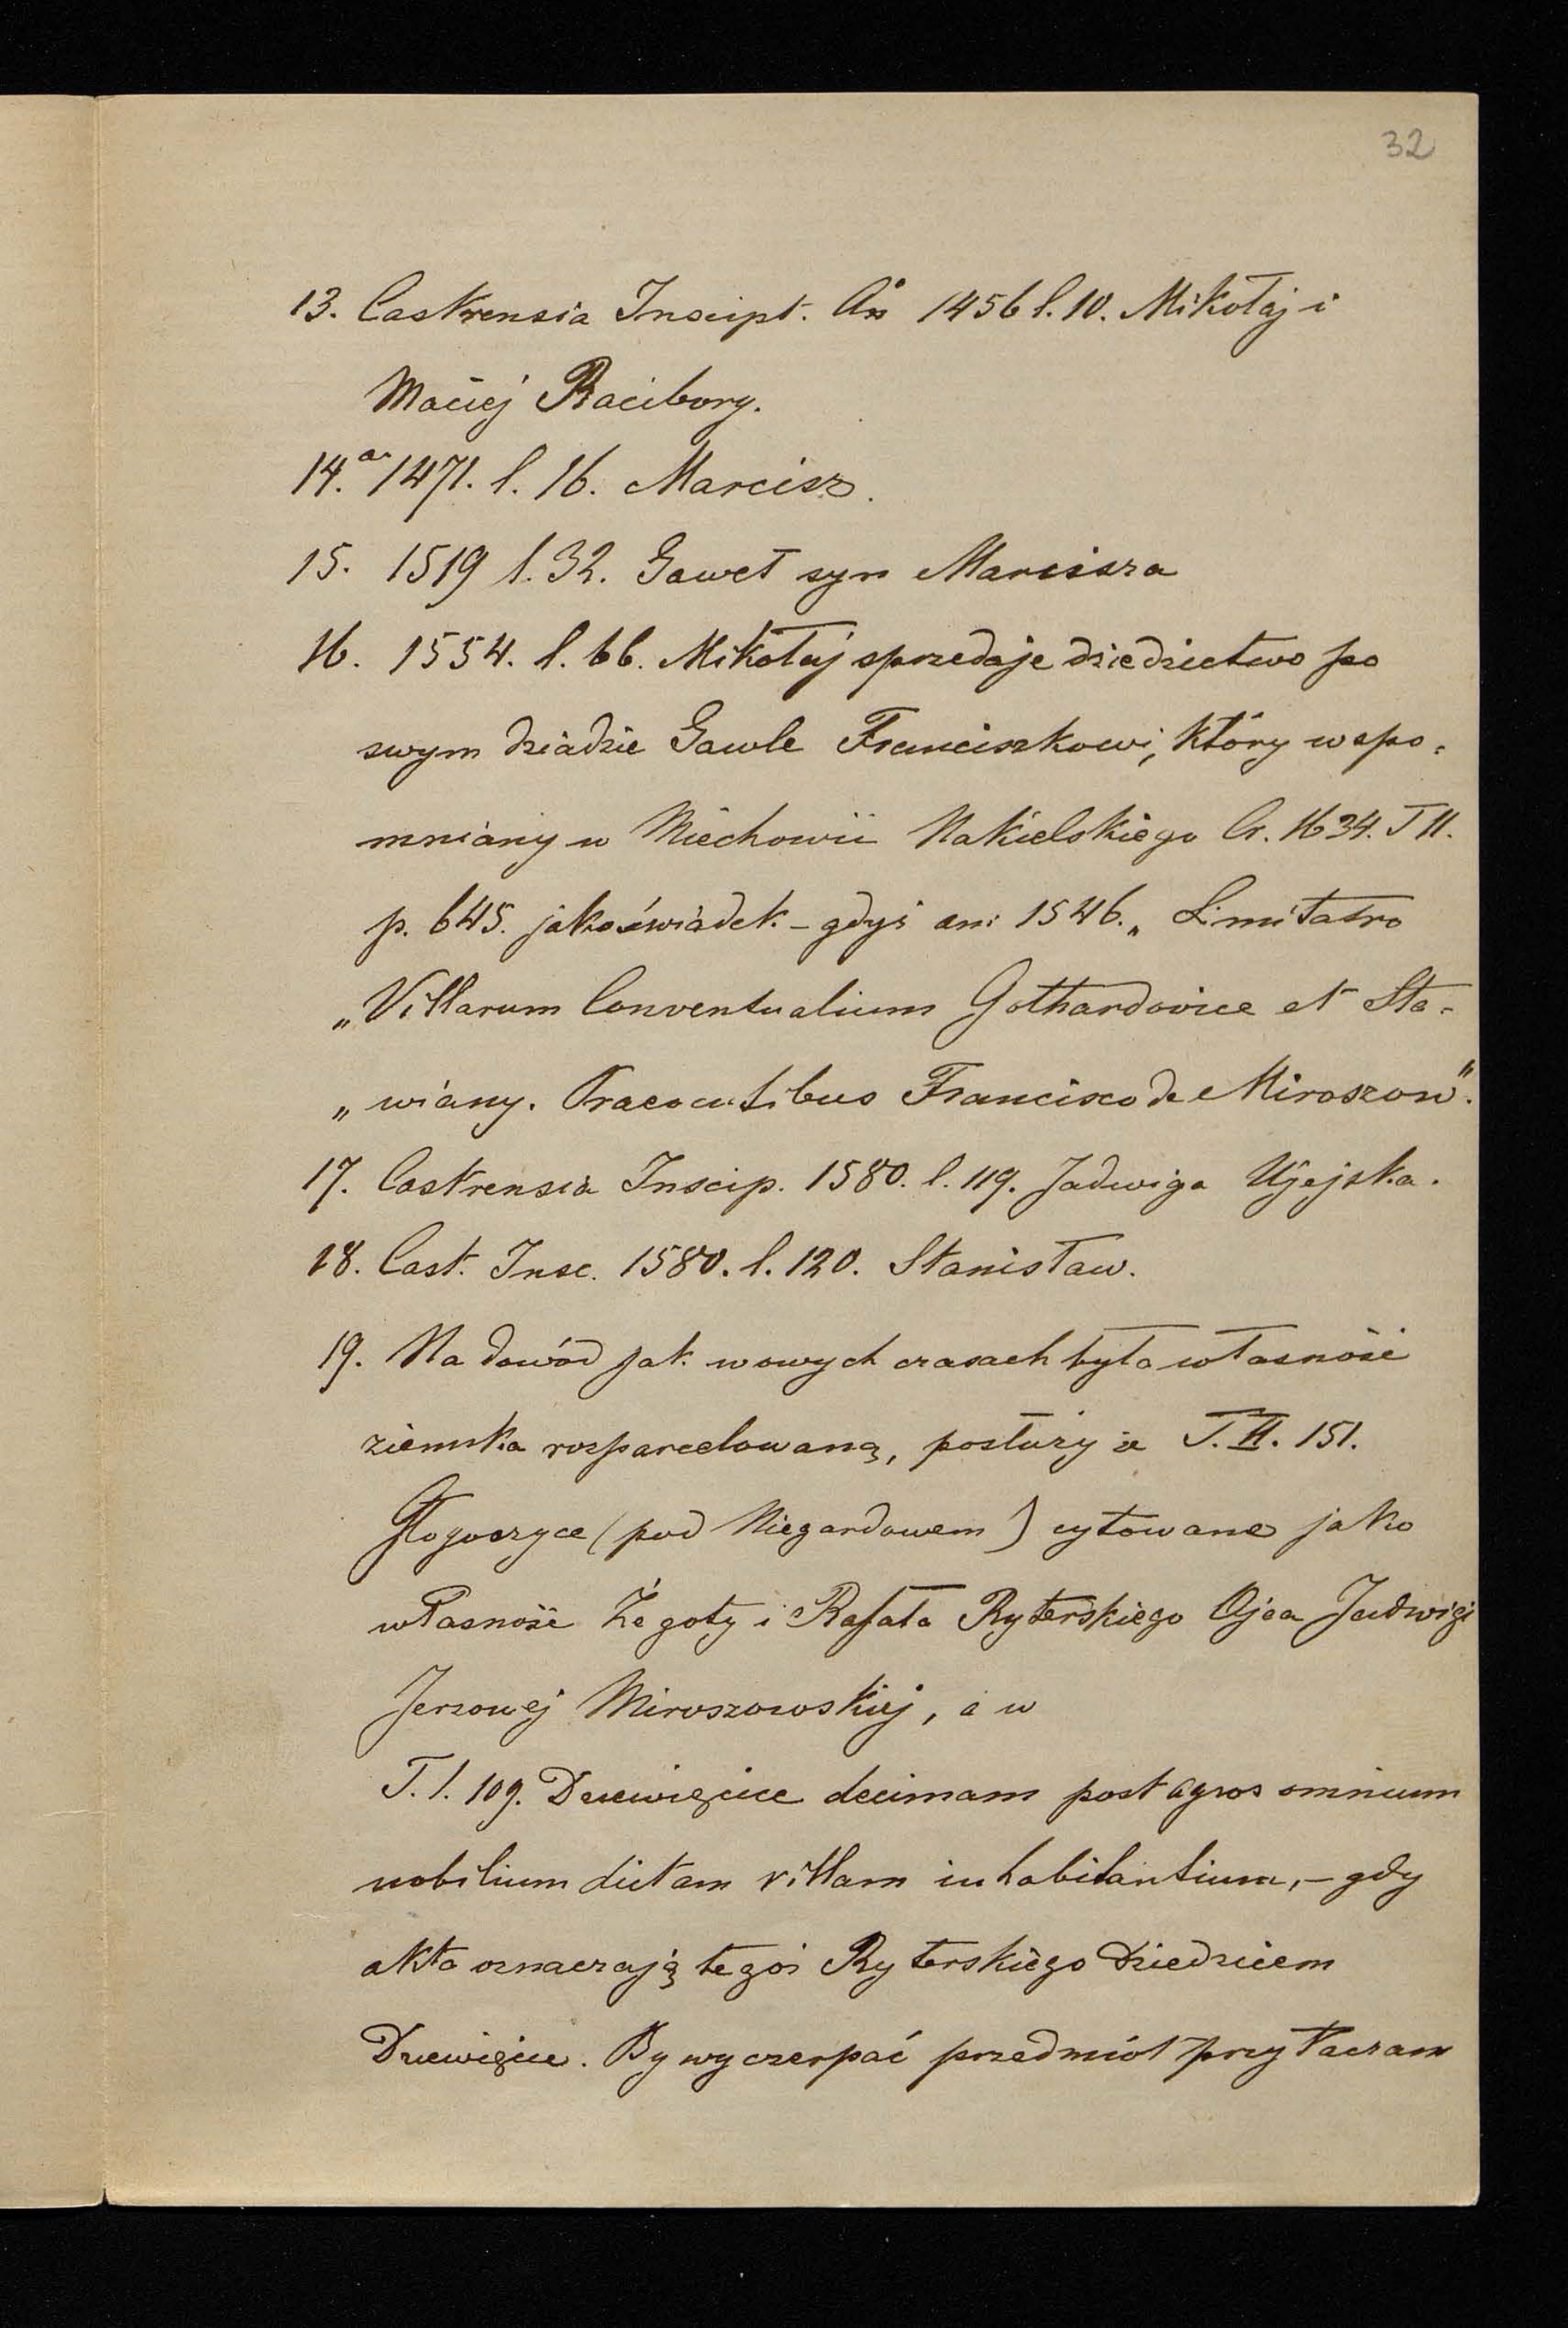 32
13. Castrensia Inscipt. Ao 1456 l. 10. Mikołaj i
Maciej Raciborg.
14. a. 1471. l. 16. Marcisz.
15. 1519 l. 32. Gaweł syn Marcisza
16. 1554. l. 66. Mikołaj sprzedaje dziedzictwo po
swym dziadzie Gawle Franciszkowi, który wspo-
mniany w Miechowii Nakielskiego Cr. 1634. T II.
p. 645. jako świadek – gdyż ani 1546. „Limitatio
„Villarum Conventualium Gothardovice et Sta-
„wiany. Francisco de Miroszow".
17. Castrensia Inscip. 1580. l. 119. Jadwiga Ujejska.
18. Cast. Insc. 1580. l. 120. Stanisław.
19. Na dowód jak w owych czasach była własność
ziemska rozparcelowaną, posłuży że T. II. 151.
Głogoczyce (pod Niegardowem) cytowane jako
własność Żegoty i Rafała Ryterskiego Ojca Jadwigi
Jerzowej Miroszowskiej, a w
T. I. 109. Dziewięcice decimam post agros omnium
nobilium dictam villam inhabitantium, – gdy
akta oznaczają tegoż Ryterskiego Dziedzicem
Dziewięcic. By wyczerpać przedmiot przytaczam